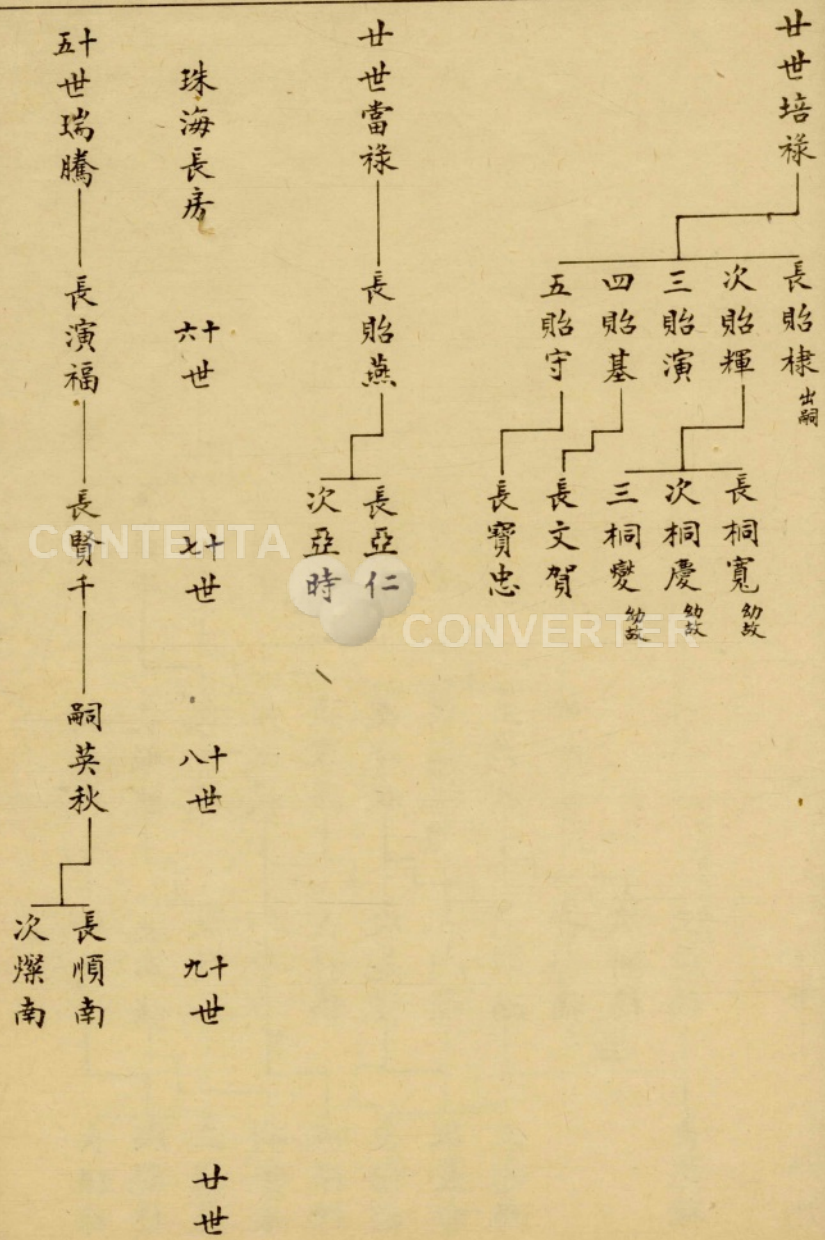 廿世培祿
長貽棣 出嗣
次貽輝
三貽演
四貽基
五貽守
長桐寬 幼故
次桐慶 幼故
三桐燮 幼故
長文賀
長寶忠
廿世當祿
長貽燕
長亞仁
次亞時
珠海長房
十六世
十七世
十八世
十九世
廿世
十五世瑞騰
長演福
長賢千
嗣英秋
長順南
次燦南
CONTENTA
CONVERTER